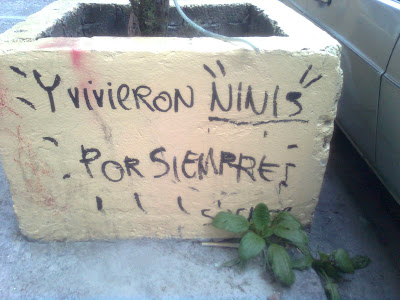 Y vivieron NiNiS
POR SIEMPRE